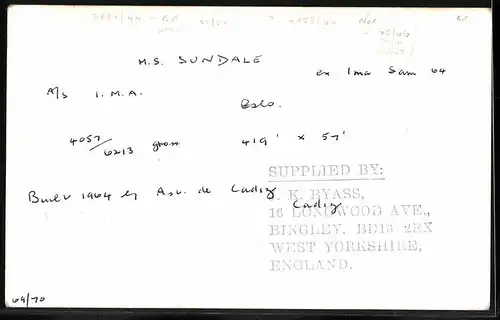 M.S. SUNDALE
ex Ima Sam 64
A/S I.M.A.
Oslo.
4057/6213 gross 419' x 57'
Built 1964 by Ast. de Cadiz
Cadiz
SUPPLIED BY:
K. BYASS,
16 LONGWOOD AVE.,
BINGLEY. BD16 2RX
WEST YORKSHIRE,
ENGLAND.
69/70